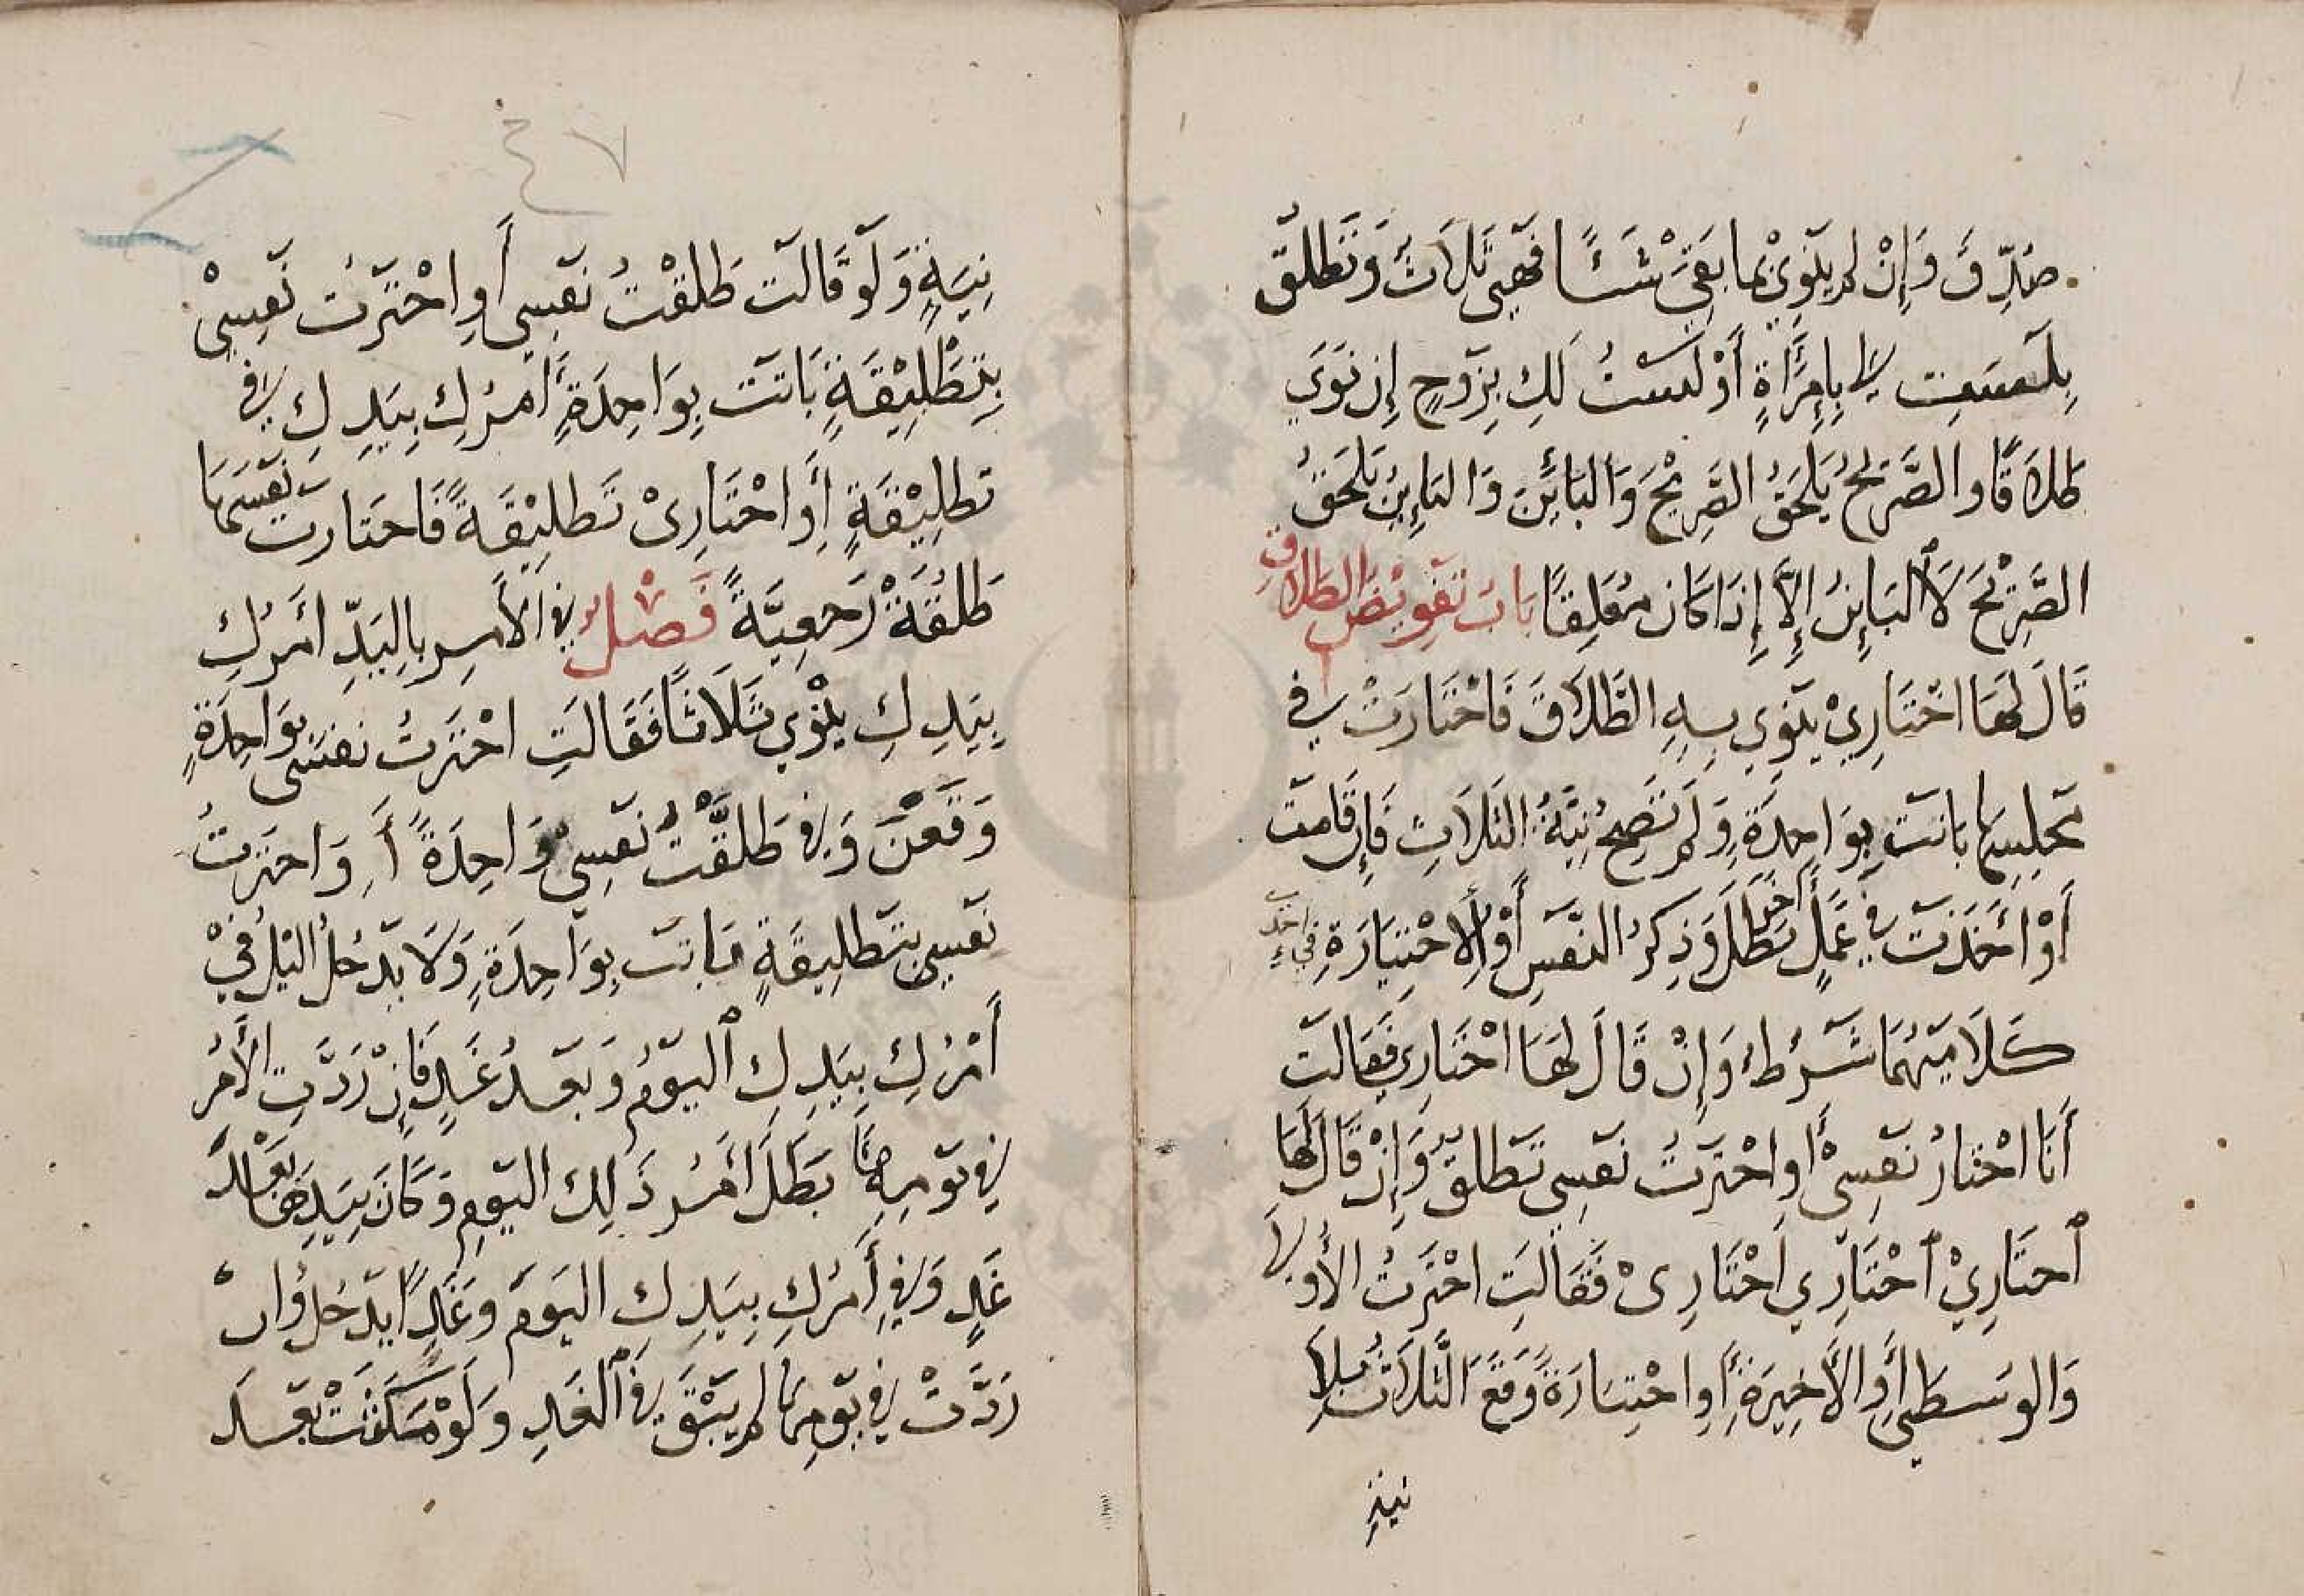 صُدِّقَ وَإِنْ لَم يَنْوِيْ بِمَا بَقِيَ شَئًا فَهِيَ ثَلَاثٌ وَتَطْلُقُ
بِلَسْتِ لِي بِإِمْرَأَةٍ أَوْ لَسْتُ لَكِ بِزَوْجٍ إِن نَوَى
طَلَاقًا والصَّرِيْحُ يَلْحَقُ الصَّرِيْحَ وَالبَائِنَ وَالبَايِنُ يَلْحَقُ
الصَّرِيْحَ لَا البَايِنُ إِلَّا إِذَا كَان مُعَلِقًا بَابُ تَفْوِيْضِ الطَلَاقِ
قَالَ لَهَا اخْتَارِيْ يَنْوِي بِهِ الطَّلَاقَ فَاخْتَارَتْ فِي
مَجْلِسِهَا بَانَتْ بِوَاحِدَةٍ وَلَم تَصِحُ نِيَّةُ الثَلَاثِ فَإِن قَامَتْ
أَوْ أَخَذَتْ فِي عَمَلٍ أخَرَ بَطَلَ وَذِكرُ النَفْسِ أَوْ الإِخْتِيَارَةِ فِي احَدِ
كَلَامَيْهُمَا شَرْطٌ وَإِنْ قَالَ لَهَا اخْتَارِي فَقَالَتْ
أَنَا اخْتَارُ نَفْسِيْ أَو اخْتَرْتُ نَفْسِي تَطْلُقُ وَإِنْ قَالَ لَهَا
اخْتَارِيْ اخْتَارِي اخْتَارِىْ فَقَالَتِ اخْتَرْتُ الأُوْلَى
وَالوُسْطَى أَوِ الأَخِيرَةَ أَوِ اخْتِيَارَةً وَقَعَ الثَّلَاثُ بِلَا
نيةٍ
٤٧
نِيَةٍ وَلَوْ قَالَتْ طَلَقْتُ نَفْسِي أَوِ اخْتَرْتُ نَفْسِيْ
بِتَطْلِيْقَةٍ بَانَتْ بِوَاحِدَةٍ أَمْرُكِ بِيَدِكِ فِي
تَطْلِيْقَةٍ أَوِ اخْتَارِىْ تَطْلِيْقَةً فَاخْتَارتْ نَفْسَهَا
طَلُقَةْ رَجْعِيَّةً فَصْلٌ فِي الأَمرِ بِاليَدِّ أَمْرُكِ
بِيَدِكِ يَنْوِي ثَلَاثًا فَقَالَتِ اخْتَرْتُ نَفْسِي بِوَاحِدَةٍ
وَقَعْنَ وَفِي طَلَّقْتُ نَفْسِي وَاحِدَةً أَوِ اخْتَرْتُ
نَفْسِي بِتَطْلِيقَةٍ بَانَتْ بِوَاحِدَةٍ وَلَا يَدْخُلُ اليْلُ فِيْ
أَمْرُكِ بِيَدِكِ اليَوْمُ وَبَعْدَ غَدٍ فَإِنْ رَدَّتِ الأَمْرُ
فِي يَوْمِهَا بَطَلَ أَمْرُ ذَلِكَ اليَوْمِ وَكَانَ بِيَدِهَا بَعْدَ
غَدٍ وَفِي أَمْرُكِ بِيَدِكِ اليَوْمَ وَغَدًا يَدْخُلُ وَان
رَدَّتْ فِي يَوْمِهَا لَم يَبْقَ فِي الغَدِ وَلَوْ مَكَثَتْ بَعْدَ